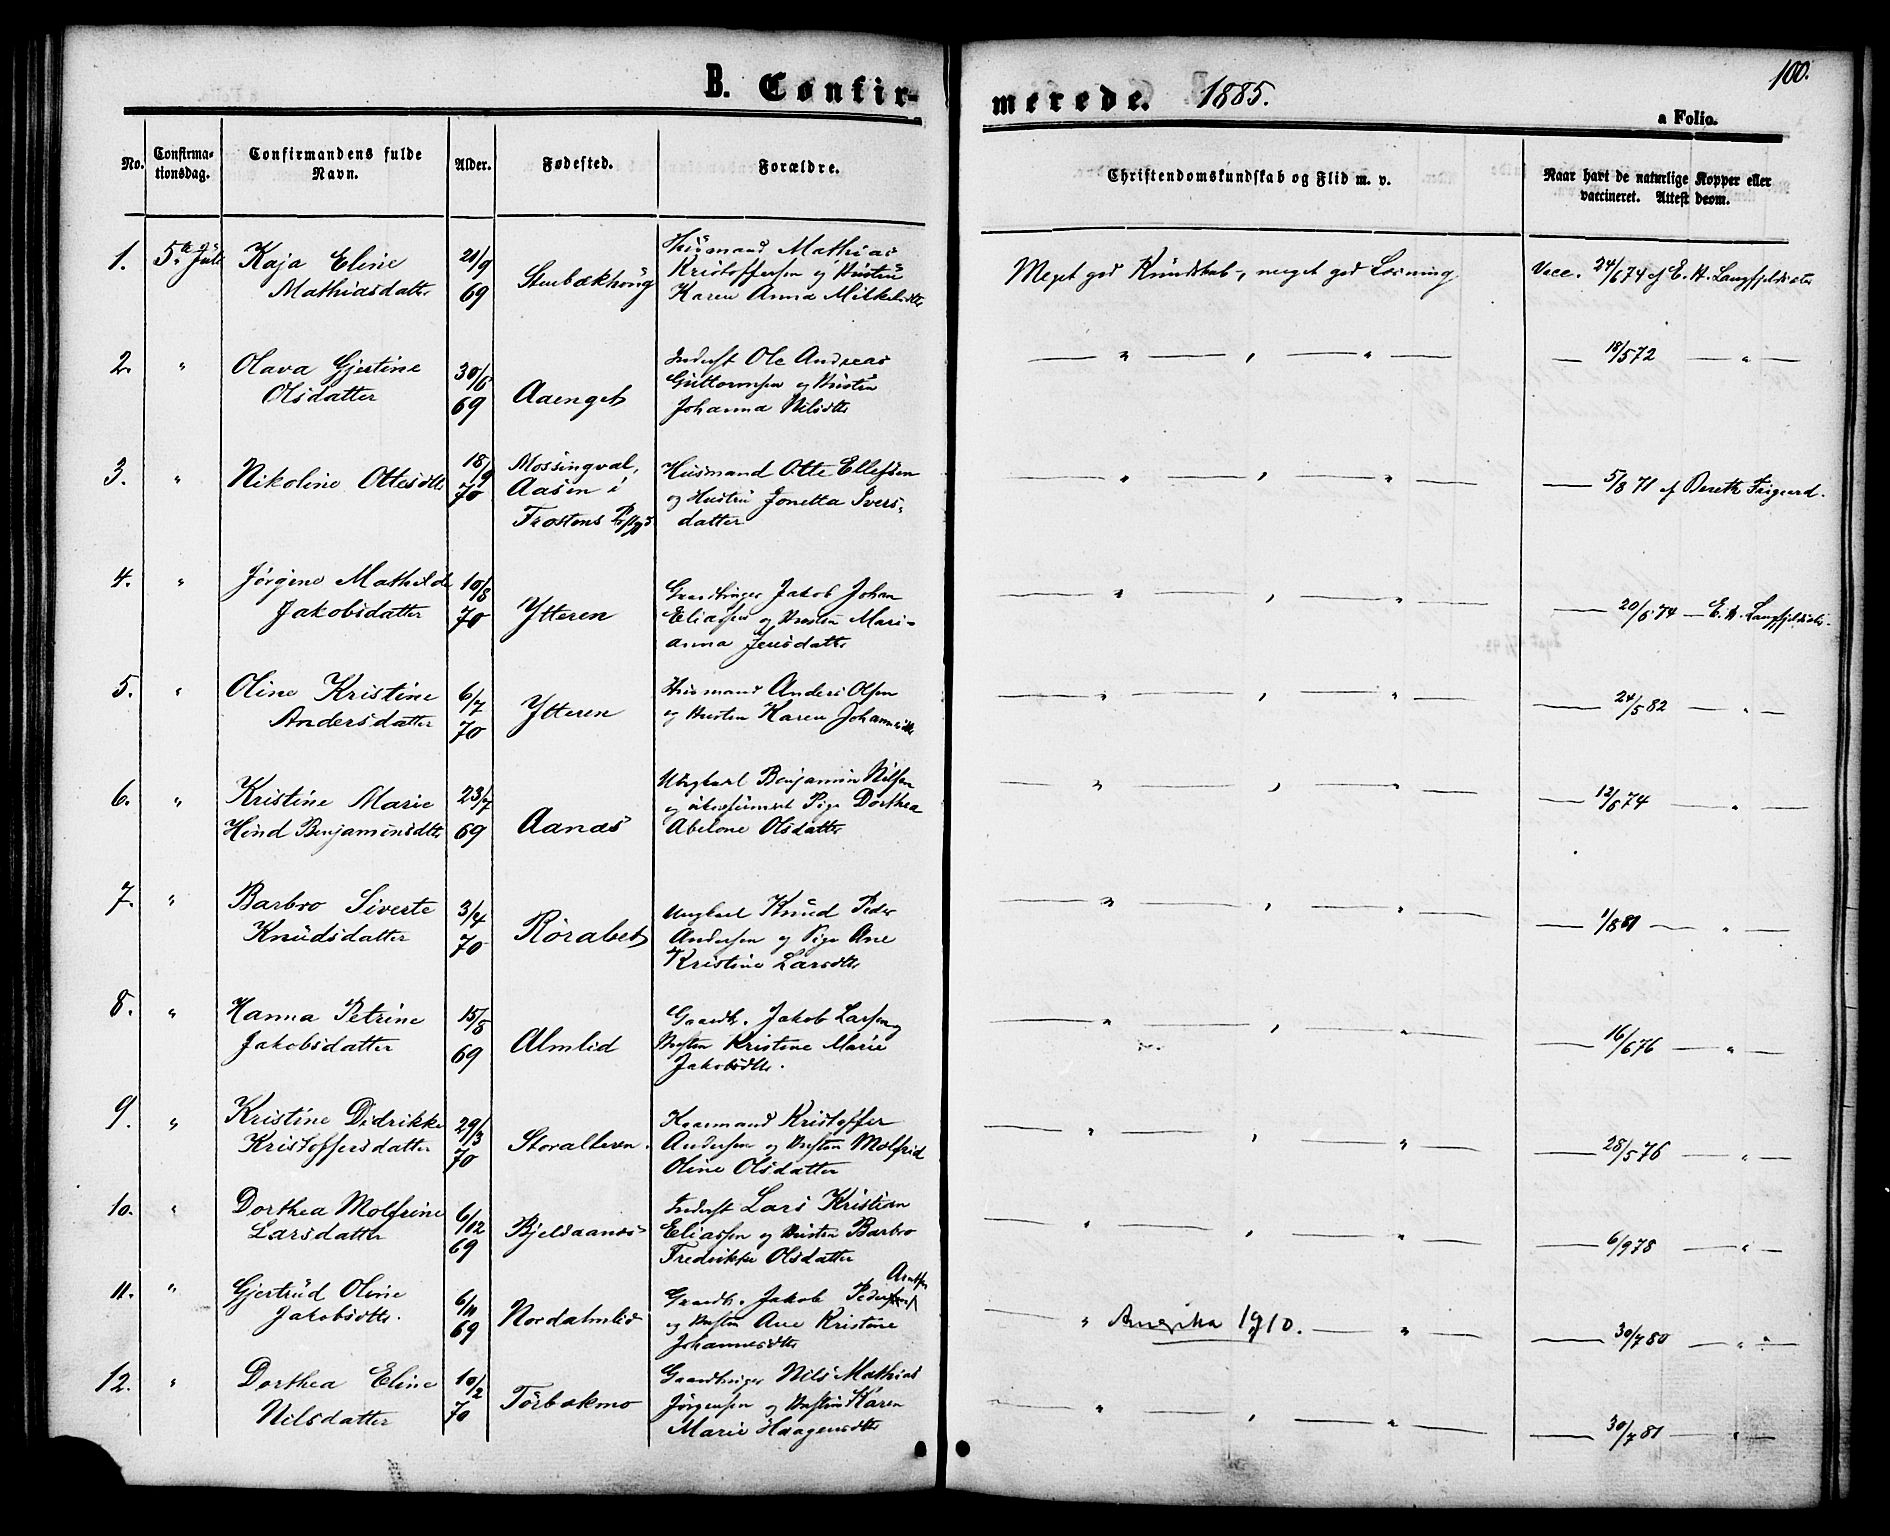 B. Confir-
merede. 1885.
100.
a Folio.
No.
Confirma-
tionsdag.
Confirmandens fulde
Navn.
Alder.
Fødested.
Forældre.
Christendomskundskab og Flid m. v.
Naar havt de naturlige Kopper eller
vaccineret. Attest derom.
1. 5te Juli Kaja Eline 21/9 Husmand Mathias
Mathiasdatter 69 Stenbækhøug Kristoffersen og Hustru
Karen Anna Mikkelsdtr
Meget god Kundskab, meget god Læsning Vacc. 24/6 74 af E. H. Langfjeldsæter
2. " Olava Gjertine 30/6 Inderst Ole Andreas
Olsdatter 69 Aaenget Guttormsen og Hustru
Johanna Nilsdtr
— " — , — " — — 18/5 72 — " —
3. " Nikoline Ottesdtr 18/9 70 Mossingval, Husmand Otte Ellefsen
Aasen i og Hustru Jonetta Ivers-
Frostens Prstgd datter
— " — , — " — — 5/8 71 af Bereth
4. " Jørgine Mathilde 10/8 Gaardbruger Jakob Johan
Jakobsdatter 70 Ytteren Eliassen og Hustru Mari-
anna Jensdatter
— " — , — " — — 20/6 74 — E. H. Langfjeldsæter
5. " Oline Kristine 6/7 Husmand Anders Olsen
Andersdatter 70 Ytteren og Hustru Karen Johannesdtr
— " — , — " — — 24/5 82 — " —
6. " Kristine Marie 23/7 Ungkarl Benjamin Nilsen
Hind Benjaminsdtr 69 Aanæs og Pige Dorthea
Abelone Olsdatter
— " — , — " — — 12/6 74 — " —
7. " Barbro Siverte 3/4 Ungkarl Knud Peder
Knudsdatter 70 Rørabet Andersen og Pige Ane
Kristine Larsdtr
— " — , — " — — 1/8 81 — " —
8. " Hanna Petrine 15/8 Gaardbr. Jakob Larsen og
Jakobsdatter 69 Almlid Hustru Kristine Marie
Jakobsdtr.
— " — , — " — — 16/6 76 — " —
9. " Kristine Didrikke 29/3 Kaarmand Kristoffer
Kristoffersdatter 70 Storalteren. Andersen og Hustru Molfrid
Oline Olsdatter
— " — , — " — — 28/5 76 — " —
10. " Dorthea Molfrine 6/12 Inderst Lars Kristian
Larsdatter 69 Bjeldaanes Eliassen og Hustru Barbro
Fredrikke Olsdatter
— " — , — " — — 6/9 78 — " —
11. " Gjertrud Oline 6/11 Gaardbr. Jakob Pedersen Arntsen
Jakobsdtr. 69 Nordalmlid og Hustru Ane Kristine
Johannesdtr
— " Amerika 1910. — " — — 30/7 80 — " —
12. " Dorthea Eline 10/2 Gaardbruger Nils Mathias
Nilsdatter 70 Tørbækmo Jørgensen og Hustru Karen
Marie Haagensdtr
— " — , — " — — 30/7 81 — " —